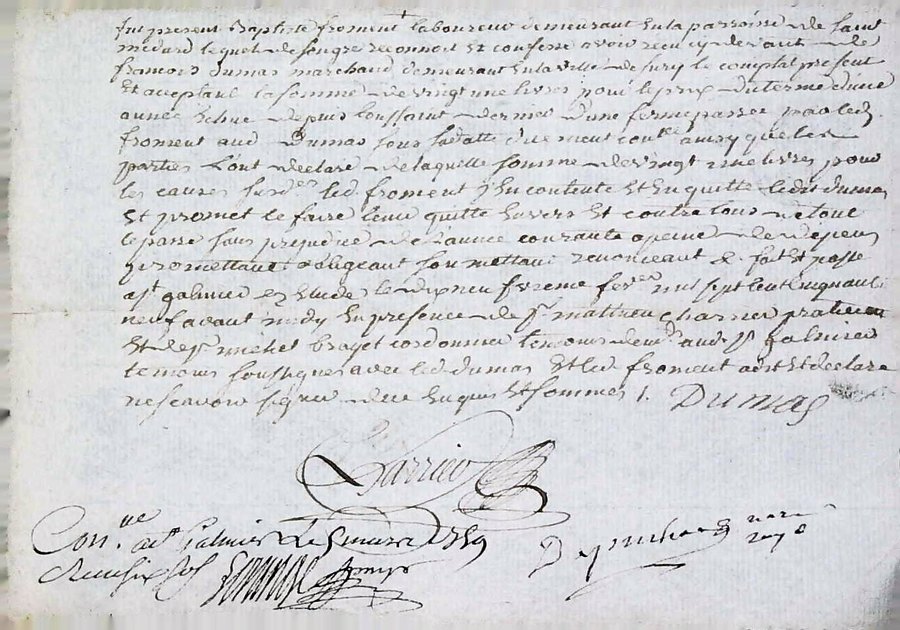 fut present Baptiste froment laboureur demeurant en la parroisse de Saint
medard lequel de son gre reconnoit et confesse avoir receu cy devant de
francois Dumas marchand demeurant en la ville de Sury le comptat present
et acceptant la somme de vingt une livres pour le prix du terme d'une
année echue depuis toussaint dernier d'une ferme passee par led
froment aud Dumas sous sa datte duement con.lée ainsy que les
parties l'ont declare de laquelle somme de vingt une livres pour
les causes susd.es led froment s'en contente et en quitte ledit dumas
et promet le faire tenir quitte envers et contre tous de tout
le passe sans prejudice de l'année courante a peine de depens
promettant obligeant soumettant renonceant &. fait et passe
a st galmier ez etude le dix neufvieme fev.er mil sept cent cinquante
neuf avant midy en presence de sr mathieu charrier praticien
et de sr michel brayet cordonnier temoins dem.t aud. st galmier
temoins soussignes avec led dumas et led froment a dit et declare
ne scavoir signer de ce enquis et somme s. Dumas
Charrier
Con.lle a st Galmier le mars 1759
Receu six sols
nore
roye